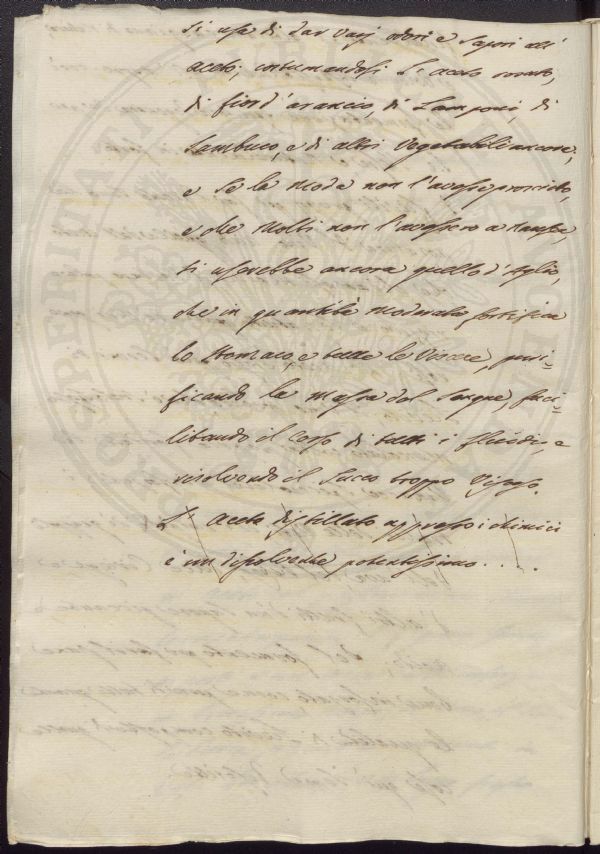 Si usa di dar varj odori e sapori all'
aceto; costumandosi l'aceto rosato,
di fior d'arancio, di Lamponi, di
Sambuco, e di altri Vegetabili ancora;
e se la moda non l'avesse proscritto,
e che molti non l'avessero a nausea,
si userebbe ancora quello d'Aglio,
che in quantità moderata fortifica
lo stomaco, e tutte le Viscere, puri=
ficando la massa dal Sangue, faci=
litando il corso di tutti i fluidi, e
risolvendo il Succo troppo Viscoso.
L'Aceto distillato appresso i chimici
è un dissolvente potentissimo . . . .